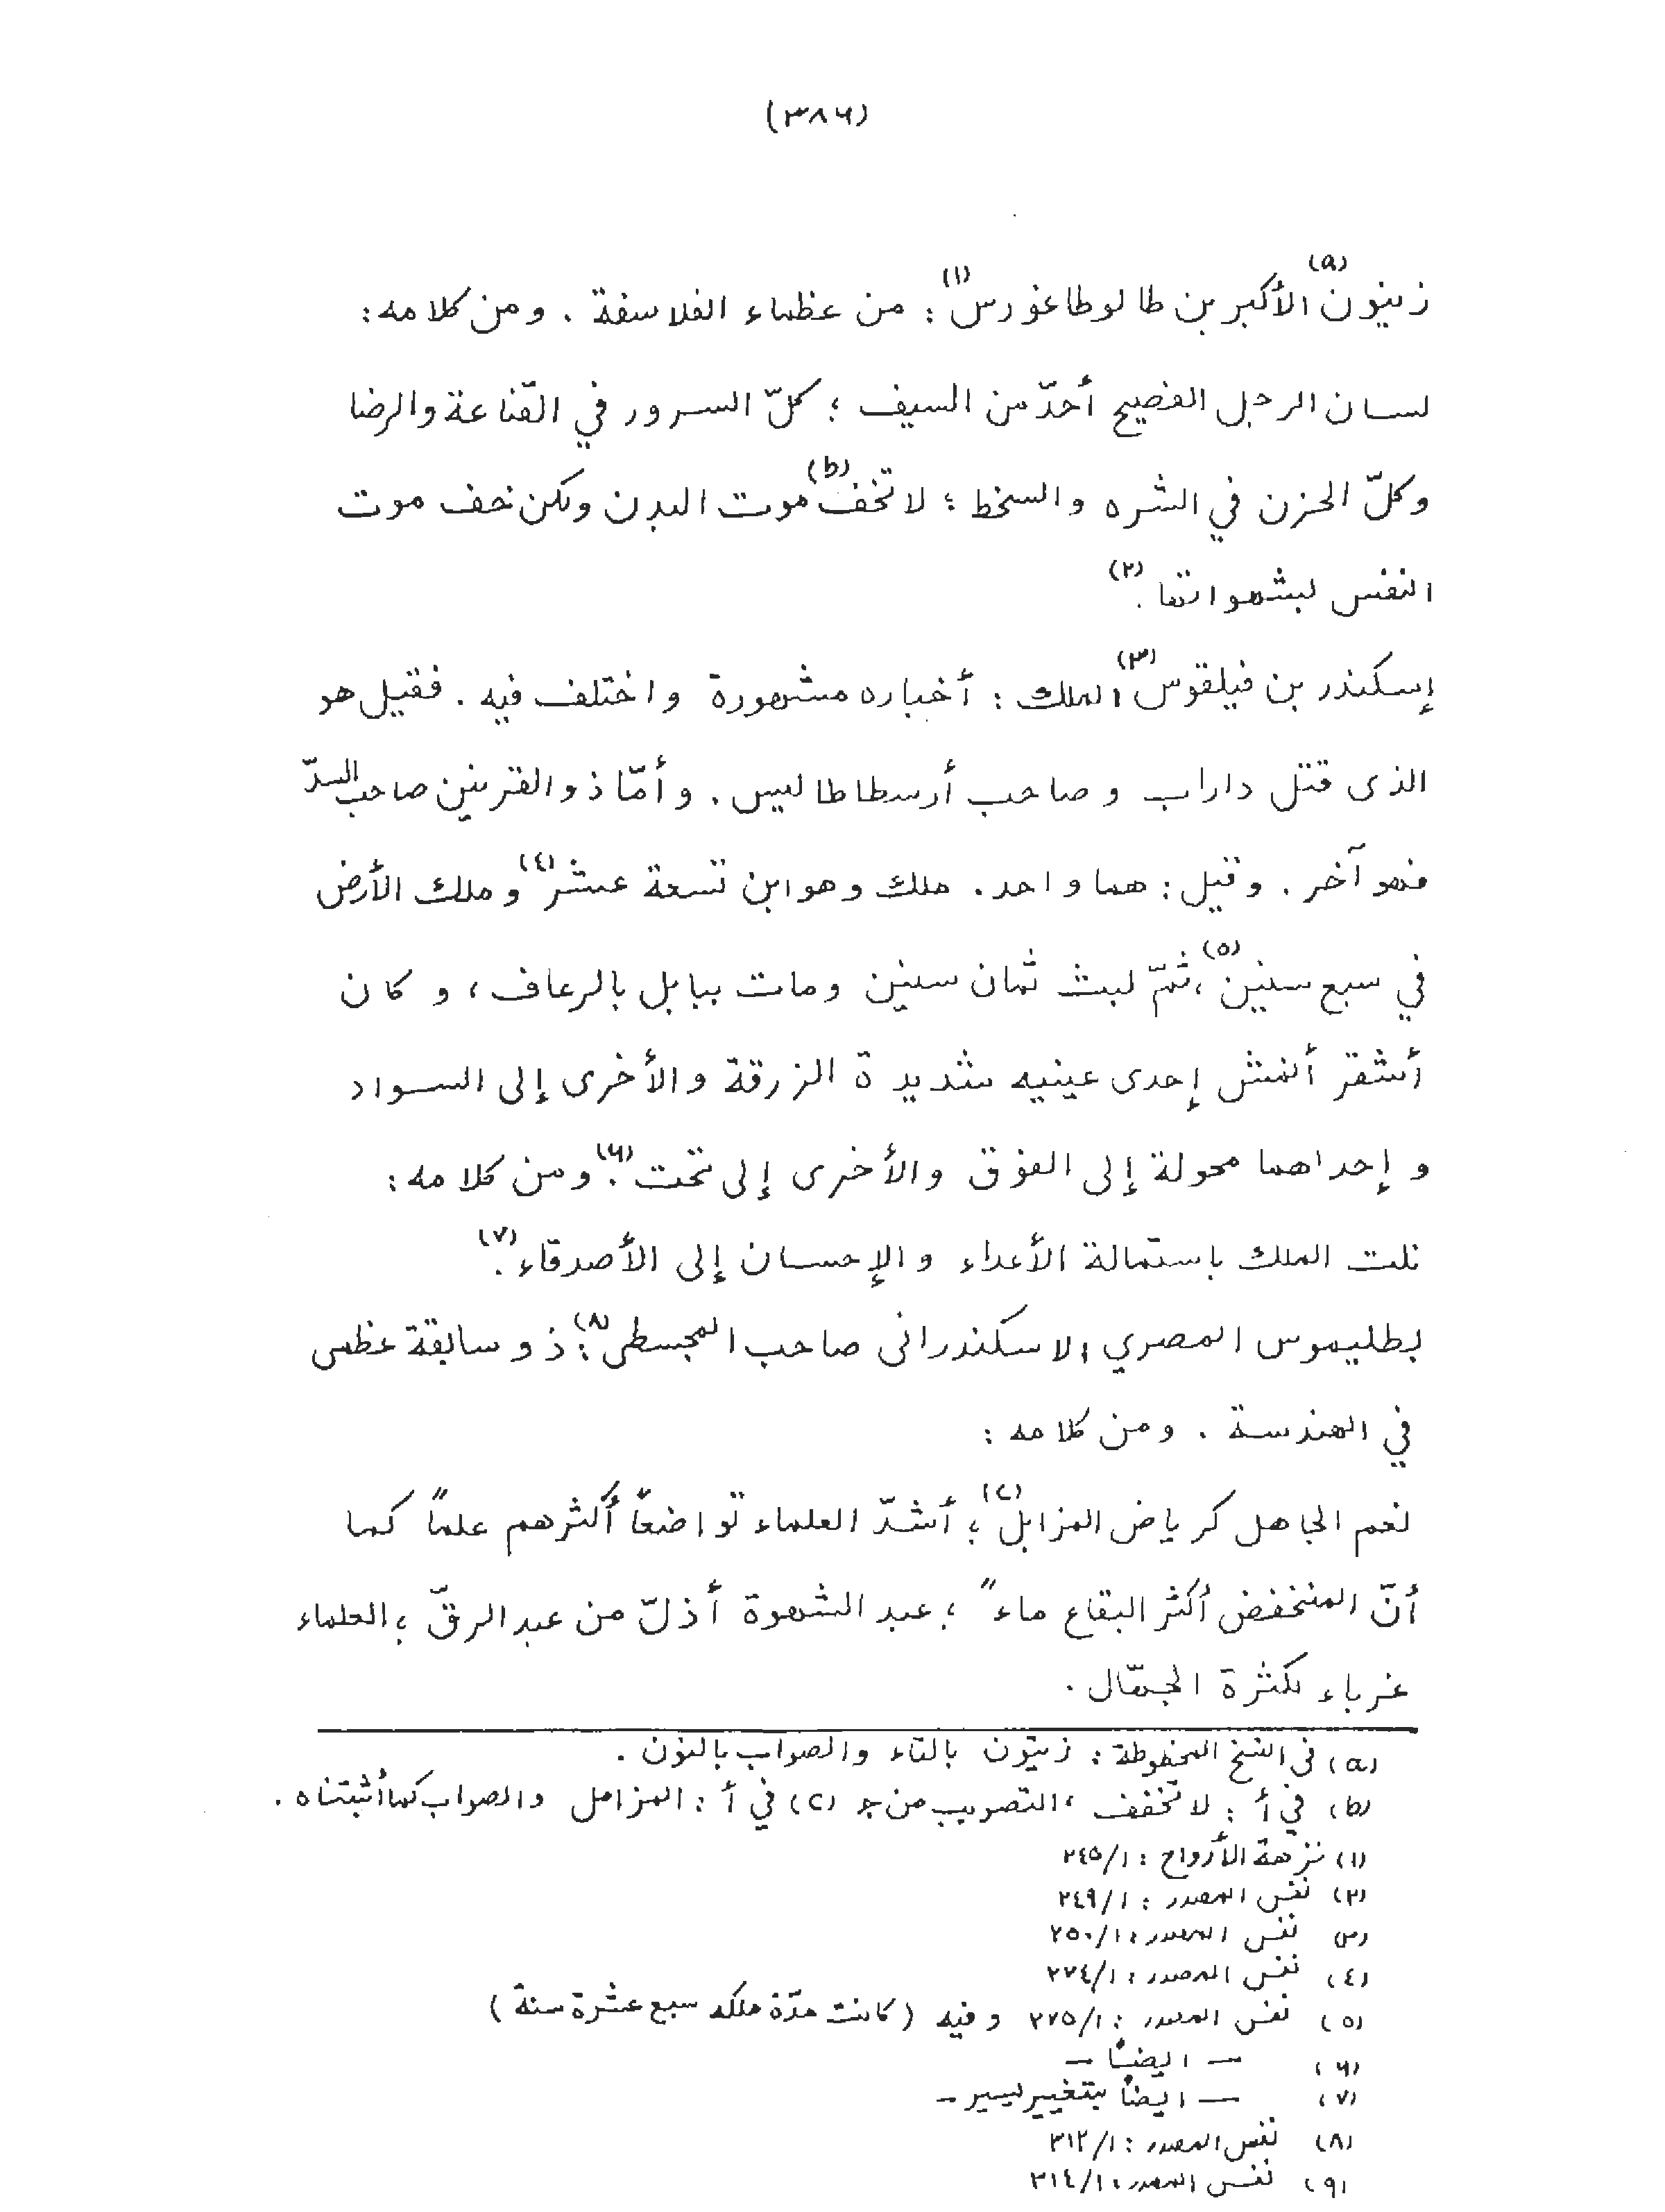 (٣٨٦)
زينون(a) الأكبر بن طالوطاغورس(١) : من عظماء الفلاسفة . ومن كلامه :
لسان الرجل الفصيح أحدّ من السيف ؛ كلّ السرور في القناعة والرضا
وكلّ الحزن في الشره والسخط ؛ لا تخف(b) موت البدن ولكن خف موت
النفس لبشهواتها .(٢)
إسكندر بن فيلقوس(٣) الملك : أخباره مشهورة واختلف فيه . فقيل هو
الذى قتل داراب وصاحب أرسطاطاليس . وأمّا ذو القرنين صاحب السدّ
فهو آخر . وقيل : هما واحد . ملك وهو ابن تسعة عشر(٤) وملك الأرض
في سبع سنين(٥) ، ثمّ لبث ثمان سنين ومات ببابل بالرعاف ، وكان
أشقر أنمش إحدى عينيه شديدة الزرقة والأخرى إلى السواد
وإحداهما محولة إلى الفوق والأخرى إلى تحت .(٦) ومن كلامه :
نلت الملك باستمالة الأعداء والإحسان إلى الأصدقاء .(٧)
بطليموس المصري الاسكندرانى صاحب المجسطى(٨) : ذو سابقة عظمى
في الهندسة . ومن كلامه :
نعم الجاهل كرياض المزابل(c) ؛ أشدّ العلماء تواضعاً أكثرهم علماً كما
أنّ المنخفض أكثر البقاع ماءً ؛ عبد الشهوة أذلّ من عبد الرقّ ؛ العلماء
غرباء لكثرة الجهّال .
(a) في النسخ المخطوطة : زيتون بالتاء والصواب بالنون .
(b) في أ : لا تخفف ، التصويب من ج (c) في أ : المزامل والصواب كما أثبتناه .
(١) نزهة الأرواح : ٢٤٥/١
(٢) نفس المصدر : ٢٤٩/١
(٣) نفس المصدر : ٢٥٠/١
(٤) نفس المصدر : ٢٧٤/١
(٥) نفس المصدر : ٢٧٥/١ وفيه (كانت مدّة ملكه سبع عشرة سنة)
(٦) — ايضاً —
(٧) — ايضاً بتغيير يسير —
(٨) نفس المصدر : ٣١٢/١
(٩) نفس المصدر : ٣١٤/١